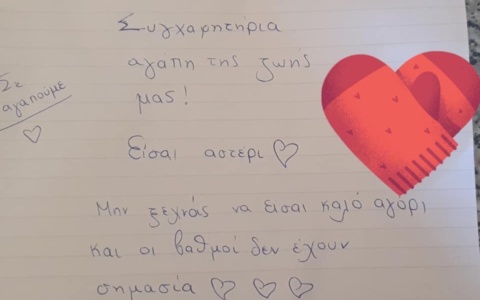 Συγχαρητήρια
αγάπη της ζωής
μας!
Σε
αγαπούμε
Είσαι αστέρι
Μην ξεχνάς να είσαι καλό αγόρι
και οι βαθμοί δεν έχουν
σημασία